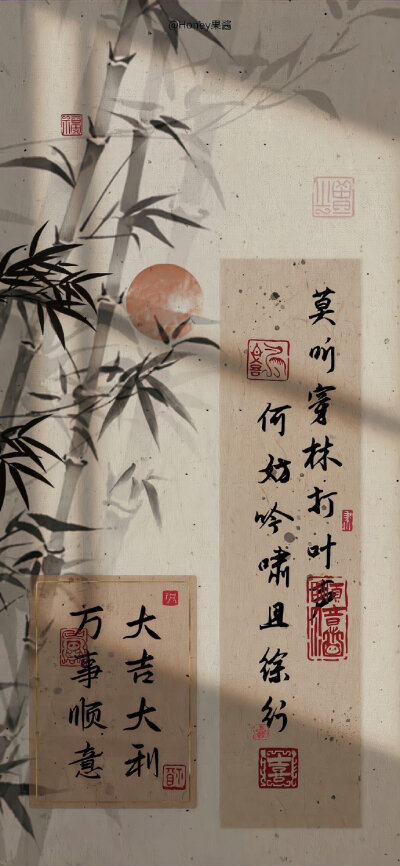 @Honey果酱
莫听穿林打叶声
何妨吟啸且徐行
大吉大利
万事顺意